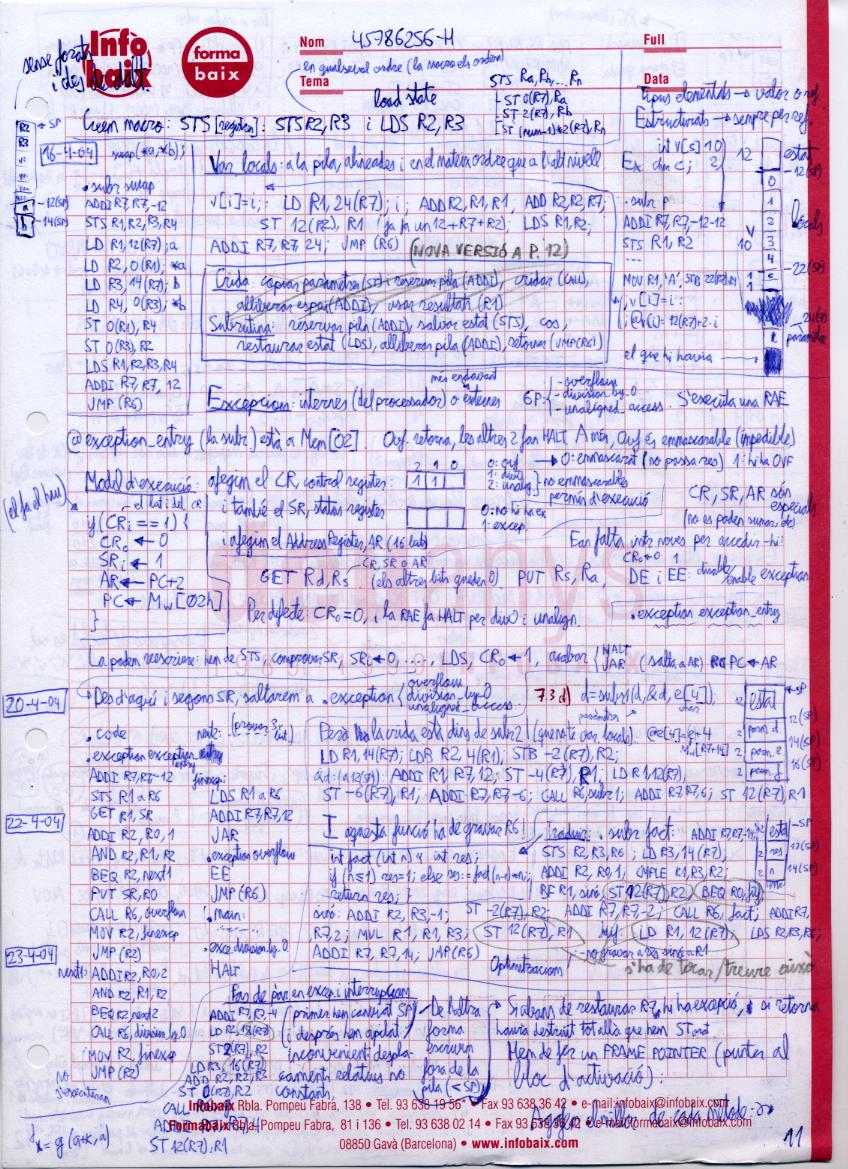 Infobaix
forma
baix
Nom 45786256-H
Full
Tema
Data
sense forats
i des de dalt.
en qualsevol ordre (la macro els ordena)
load state
STS Ra, Rb, ... Rn
ST 0(R7), Ra
ST 2(R7), Rb
ST (num-1)*2(R7), Rn
Tipus elementals → valor o ref.
Estructurats → sempre per ref.
Creem macro: STS [registres]: STS R2, R3 i LDS R2, R3
R2 ← SP
R3
a -12(SP)
b -14(SP)
16-4-04
swap(*a,*b);
. subr swap
ADDI R7,R7,-12
STS R1,R2,R3,R4
LD R1,12(R7); a
LD R2, 0(R1); *a
LD R3, 14(R7); b
LD R4, 0(R3); *b
ST 0(R1), R4
ST 0(R3), R2
LDS R1,R2,R3,R4
ADDI R7, R7, 12
JMP (R6)
Var locals: a la pila, alineades i en el mateix ordre que a l'alt nivell
v[i]=i; LD R1, 24(R7); i; ADD R2,R1,R1; ADD R2,R2,R7;
ST 12(R2), R1 ; ja fa un 12+R7+R2; LDS R1,R2;
ADDI R7,R7,24; JMP (R6)
(NOVA VERSIÓ A P. 12)
Crida: copiar paràmetres (ST) i reservar pila (ADDI), cridar (CALL),
alliberar espai (ADDI), usar resultats (R1)
Subrutina: reservar pila (ADDI), salvar estat (STS), cos,
restaurar estat (LDS), alliberar pila (ADDI), retornar (JMP(R6))
Ex
int v[5] 10
char c; 2
12
. subr p
ADDI R7,R7,-12-12
STS R1, R2
MOV R1, 'A', STB 22(R7),R1
; v[i]=i :
; @v[i]= 12(R7)+2·i
el que hi havia →
estat
-12(SP)
0
1
2
3
4
c
locals
-22(SP)
24(SP)
paràmetres
més endavant
Excepcions: internes (del processador) o externes
6P:
- overflow
- division_by_0
- unaligned_access.
S'executa una RAE
@exception_entry (la subr.) està a Mem[02] Ovf. retorna, les altres 2 fan HALT. A més, Ovf és emmascarable (impedible)
Model d'execució: afegim el CR, control register:
2 1 0
1 1
0: ovf
1: div0
2: unalig
→ 0: emmascarat (no passa res) 1: hi ha OVF
no emmascarables
permís d'execució
(el fa el hw)
el bit i del CR
if (CRi == 1) {
CR0 ← 0
SRi ← 1
AR ← PC+2
PC ← Mw[02h]
}
i també el SR, status register
0: no hi ha ex
1: excep.
CR, SR, AR són
especials
(no es poden sumar, etc)
i afegim el Address Register, AR (16 bits)
Fan falta instr noves per accedir-hi:
CR, SR o AR
CR0←0 1
GET Rd, Rs (els altres bits queden 0) PUT Rs, Ra, DE i EE: disable/enable exception
Per defecte CR0=0, i la RAE fa HALT per div0 i unalign.
.exception exception_entry
La poden reescriure: hem de STS, comprovar SR, SRi←0, ...., LDS, CR0←1, acabar
HALT
JAR (salta a AR) PC←AR
20-4-04
Des d'aquí i segons SR, saltarem a .exception
overflow
division_by_0
unaligned_access.
.code
.exception exception_entry
ADDI R7,R7,-12
STS R1 a R6
GET R1, SR
ADDI R2, R0, 1
AND R2, R1, R2
BEQ R2, next1
PUT SR, R0
CALL R6, overflow
MOV R2, finexcep
JMP (R2)
22-4-04
23-4-04
next1: ADDI R2, R0, 2
AND R2, R1, R2
BEQ R2, next2
CALL R6, division_by_0
MOV R2, finexcep
JMP (R2)
no s'executaran
next2:
finexcep:
LDS R1 a R6
ADDI R7,R7,12
JAR
.exception overflow
EE
JMP (R6)
.main:
.exce division_by_0
HALT
7.3 d) d=subr1(d,&d,e[4]);
char
Però la crida està dins de subr2 (que no té var locals). @e[4]=e+4
paràmetre
LD R1,14(R7); LDB R2, 4(R1); STB -2(R7), R2;
&d=(a 12(SP)): ADDI R1, R7,12; ST -4(R7), R1; LD R1,12(R7),
ST -6(R7), R1, ADDI R7,R7,-6; CALL R6,subr1; ADDI R7,R7,6; ST 12(R7), R1
estat
← SP
2 param. d 12(SP)
2 param. e 14(SP)
2 param. f 16(SP)
I aquesta funció ha de gravar R6!
int fact (int n) { int res;
if (n≤1) res=1; else res:=fact(n-1)*n;
return res; }
Traduir: .subr fact: ADDI R7,R7,-14;
STS R2,R3,R6 ; LD R3,14(R7);
ADDI R2, R0,1; CMPLE R1,R3,R2;
BF R1, sinó; ST 12(R7),R2; BEQ R0,fi;
sinó: ADDI R2, R3,-1; ST -2(R7), R2; ADDI R7, R7,-2; CALL R6, fact; ADDI R7,
R7,2; MUL R1, R1, R3; ST 12(R7), R1 fi: LD R1, 12(R7); LDS R2,R3,R6;
ADDI R7,R7,14; JMP(R6)
estat
← SP
2 res 12(SP)
2 n 14(SP)
Optimitzacions - no gravar a res sinó a R1
s'ha de tocar/treure això
Pas de pàr en excep i interrupcions
ADDI R7,R7,-4
LD R2, 18(R7)
ST 2(R7), R2
LD R3, 16(R7)
ADD R2, R2, R2
ST 0(R7), R2
ST 12(R7), R1
primer hem canviat SP
i després hem apilat;
inconvenient: desplaçaments relatius no
constants,
De l'altra
forma
escrivim
fora de la
pila (<SP)
Si abans de restaurar R7 hi ha excepció, si retorna
haurà destruït tot allò que hem STorat
Hem de fer un FRAME POINTER (punter al
bloc d'activació):
Agafem el millor de cada mètode: →
x = g(a+k,a)
Infobaix Rbla. Pompeu Fabra, 138 • Tel. 93 638 19 56 • Fax 93 638 36 42 • e-mail:infobaix@infobaix.com
Formabaix Rbla. Pompeu Fabra, 81 i 136 • Tel. 93 638 02 14 • Fax 93 638 36 42 • e-mail:formabaix@infobaix.com
08850 Gavà (Barcelona) • www.infobaix.com
11